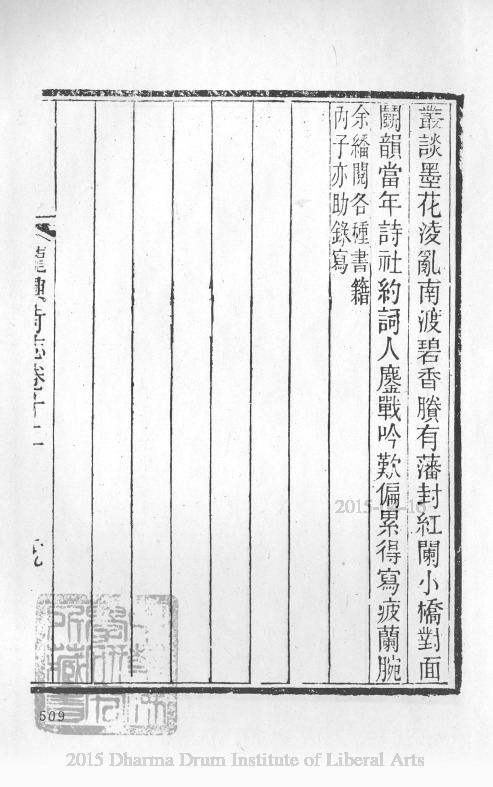 叢談墨花淩亂南渡碧香賸有藩封紅闌小橋對面
鬭韻當年詩社約詞人鏖戰吟歎偏累得寫疲蘭腕
余繙閱各種書籍
內子亦助錄寫
龍興寺志卷十二
509
2015 Dharma Drum Institute of Liberal Arts